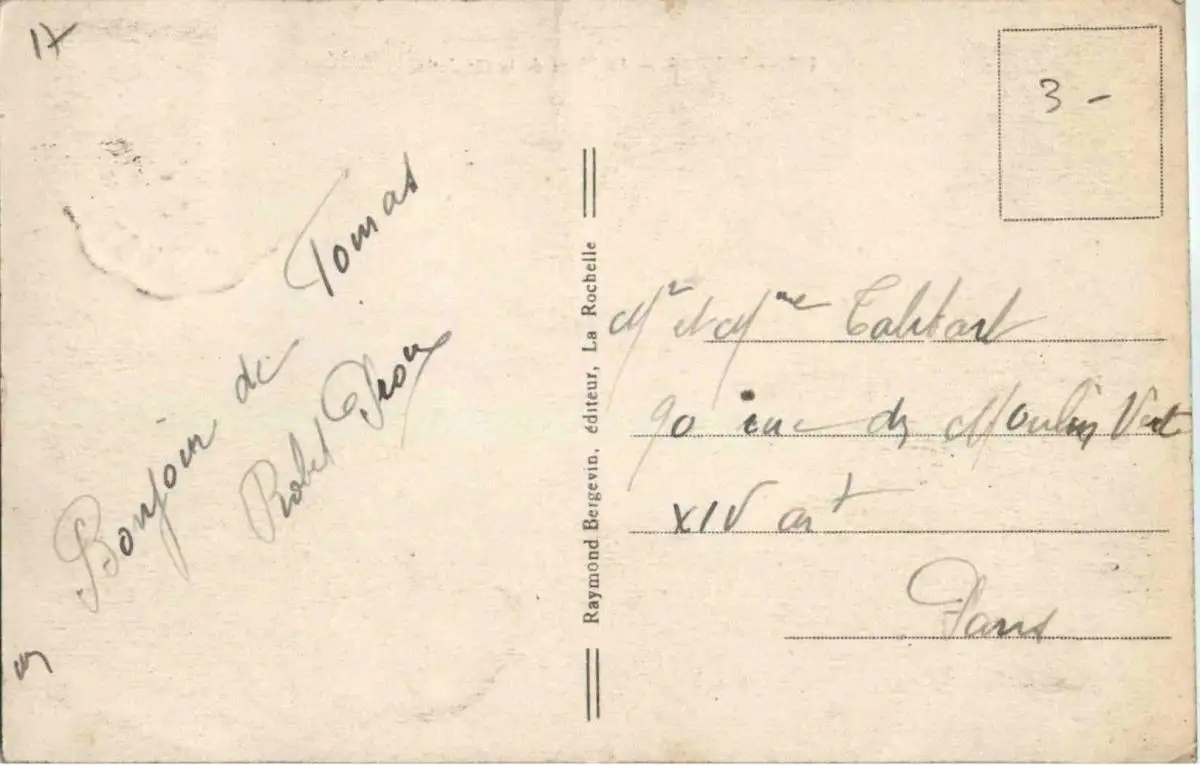 17
3 -
Bonjour de Tonnas
Robert
Raymond Bergevin, éditeur, La Rochelle
Mr et Mme
90 rue des Moulin Vert
XIV art
Paris